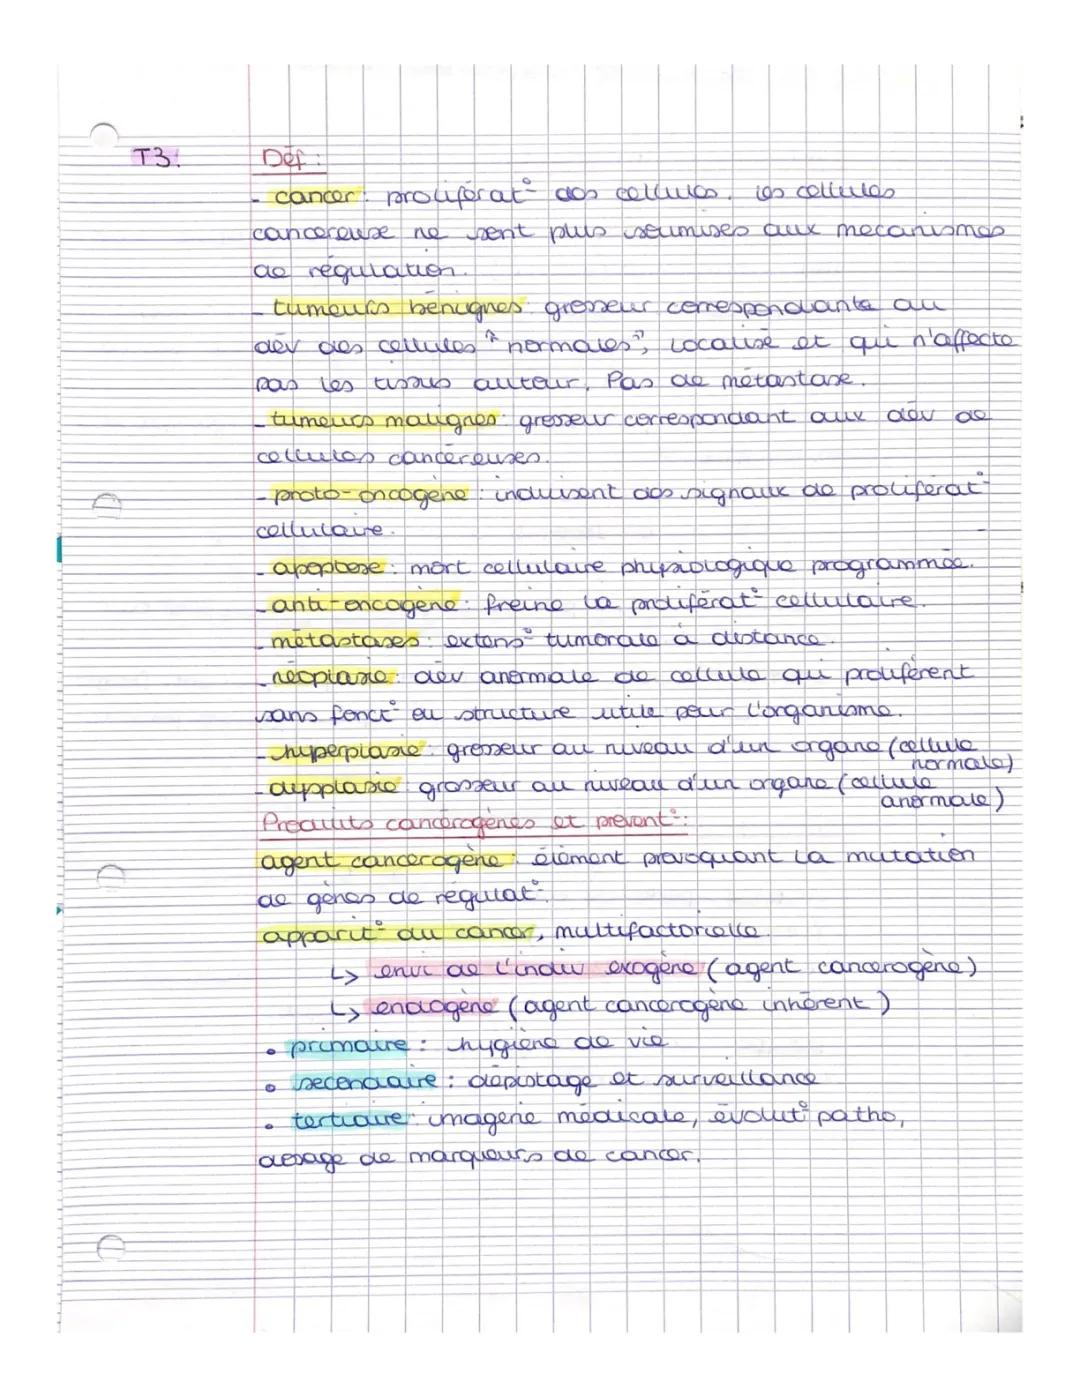 T3:
Déf :
- cancer : proliférat° des cellules. les cellules
cancereuse ne sont plus soumises aux mecanismes
de régulation.
- tumeurs bénignes : grosseur correspondante au
dév des cellules "normales", localisé et qui n'affecte
pas les tissus autour. Pas de métastase.
- tumeurs malignes : grosseur correspondant aux dév de
cellules cancéreuses.
- proto-oncogène : induisent des signaux de proliférat°
cellulaire.
- apoptose : mort cellulaire physiologique programmée.
- anti-oncogène : freine la proliférat° cellulaire.
- métastases : extens° tumorale à distance.
- néoplasie : dév anormale de cellule qui prolifèrent
sans fonct° ou structure utile pour l'organisme.
- hyperplasie : grosseur au niveau d'un organe (cellule
normale)
- dysplasie : grosseur au niveau d'un organe (cellule
anormale)
Produits cancérogènes et prévent° :
agent cancerogène : élément provoquant la mutation
de gènes de régulat°.
apparit° du cancer, multifactorielle.
↳ envi de l'indiv exogène (agent cancerogène)
↳ endogène (agent cancerogène inhérent)
• primaire : hygiène de vie
• secondaire : dépistage et surveillance
• tertiaire : imagerie médicale, évolut° patho,
dosage de marqueurs de cancer.